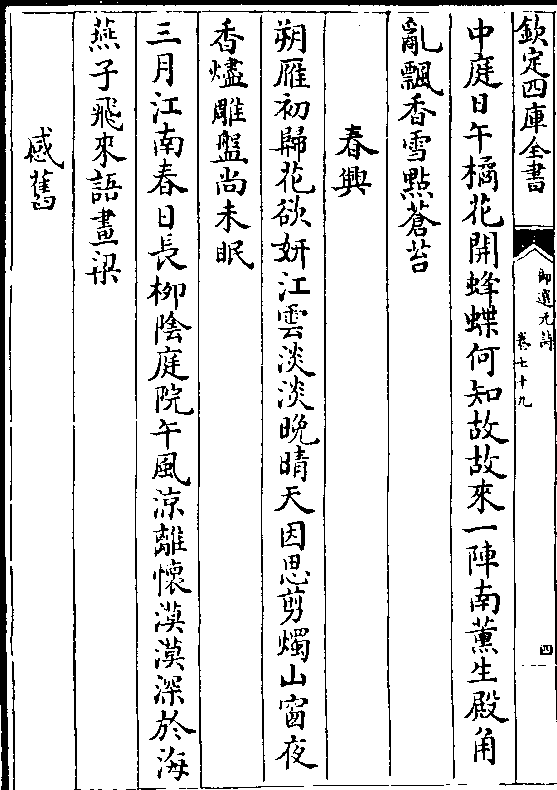 欽定四庫全書
御選元詩
卷七十九
四
中庭日午橘花開蜂蝶何知故故來一陣南薰生殿角
亂飄香雪點蒼苔
春興
朔雁初歸花欲妍江雲淡淡晚晴天因思剪燭山窗夜
香燼雕盤尚未眠
三月江南春日長柳陰庭院午風涼離懷漠漠深於海
燕子飛來語畫梁
感舊